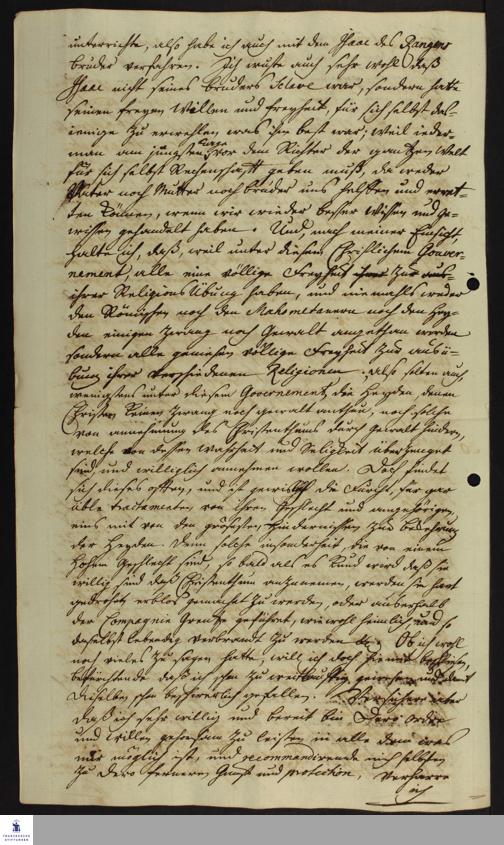 unterrichte, also habe ich auch mit dem Isaac des Rangens
bruder verfahren. Ich wuste auch sehr wohl daß
Isaac nicht seines bruders Sclave war, sondern hatte
seinen freyen Willen und Freyheit, für sich selbst das-
ienige zu erwehlen was ihm best war, weil ieder-
man am jüngsten Tage vor dem Richter der gantzen Welt
für sich selbst Rechenschafft geben muß, da weder
Vater noch Mutter noch bruder uns helffen und erret-
ten können, wenn wir wieder besser Wissen und Ge-
wissen gehandelt haben. Und nach meiner Einsicht,
halte ich, daß, weil unter diesem Christlichen Gouver-
nement alle eine völlige Freyheit zur aus-
ihrer Religions Übung haben, und niemahls weder
den Römischen noch den Mahometanern noch den Hey-
den einigen Zwang noch Gewalt angethan worden
sondern alle geniesen völlige Freyheit zur ausü-
bung ihrer verschiedenen Religionen. Also solten auch
wenigstens unter diesem Governement, die Heyden denen
Christen keinen Zwang noch gewalt anthun, noch solche
von annehmung des Christenthums durch gewalt hindern,
welche von dessen Wahrheit und Seligkeit überzeuget
sind und williglich annehmen wollen. Doch findet
sich dieses offters, und ist gewiß die Furcht, für gar
üble tractamenten von ihren Geschlecht und angehörigen,
eins mit von den grösesten Hindernissen zur bekehrung
der Heyden. Denn solche insonderheit die von einem
hohen Geschlecht sind, so bald als es kund wird daß sie
willig sind daß Christenthum anzunemen, werden sie hart
gedrohet erblos gemachet zu werden, oder auserhalb
der Compagnie Grentze geführet, wiewohl heimlich und so
daselbst lebendig verbrandt zu werden. Ob ich wohl
noch vieles zu sagen hätte, will ich doch hiemit beschliesen,
befürchtende daß ich schon zu weitläufftig gewesen und damit
dieselben schon beschwerlich gefallen. Versichere aber
daß ich sehr willig und bereit bin Dero ordre
und Willen gehorsam zu leisten in alle dem was
mir möglich ist, und recommandirende mich selbsten
zu dero ferneren Gunst und protection, verharre
ich
FRANCKESCHE STIFTUNGEN